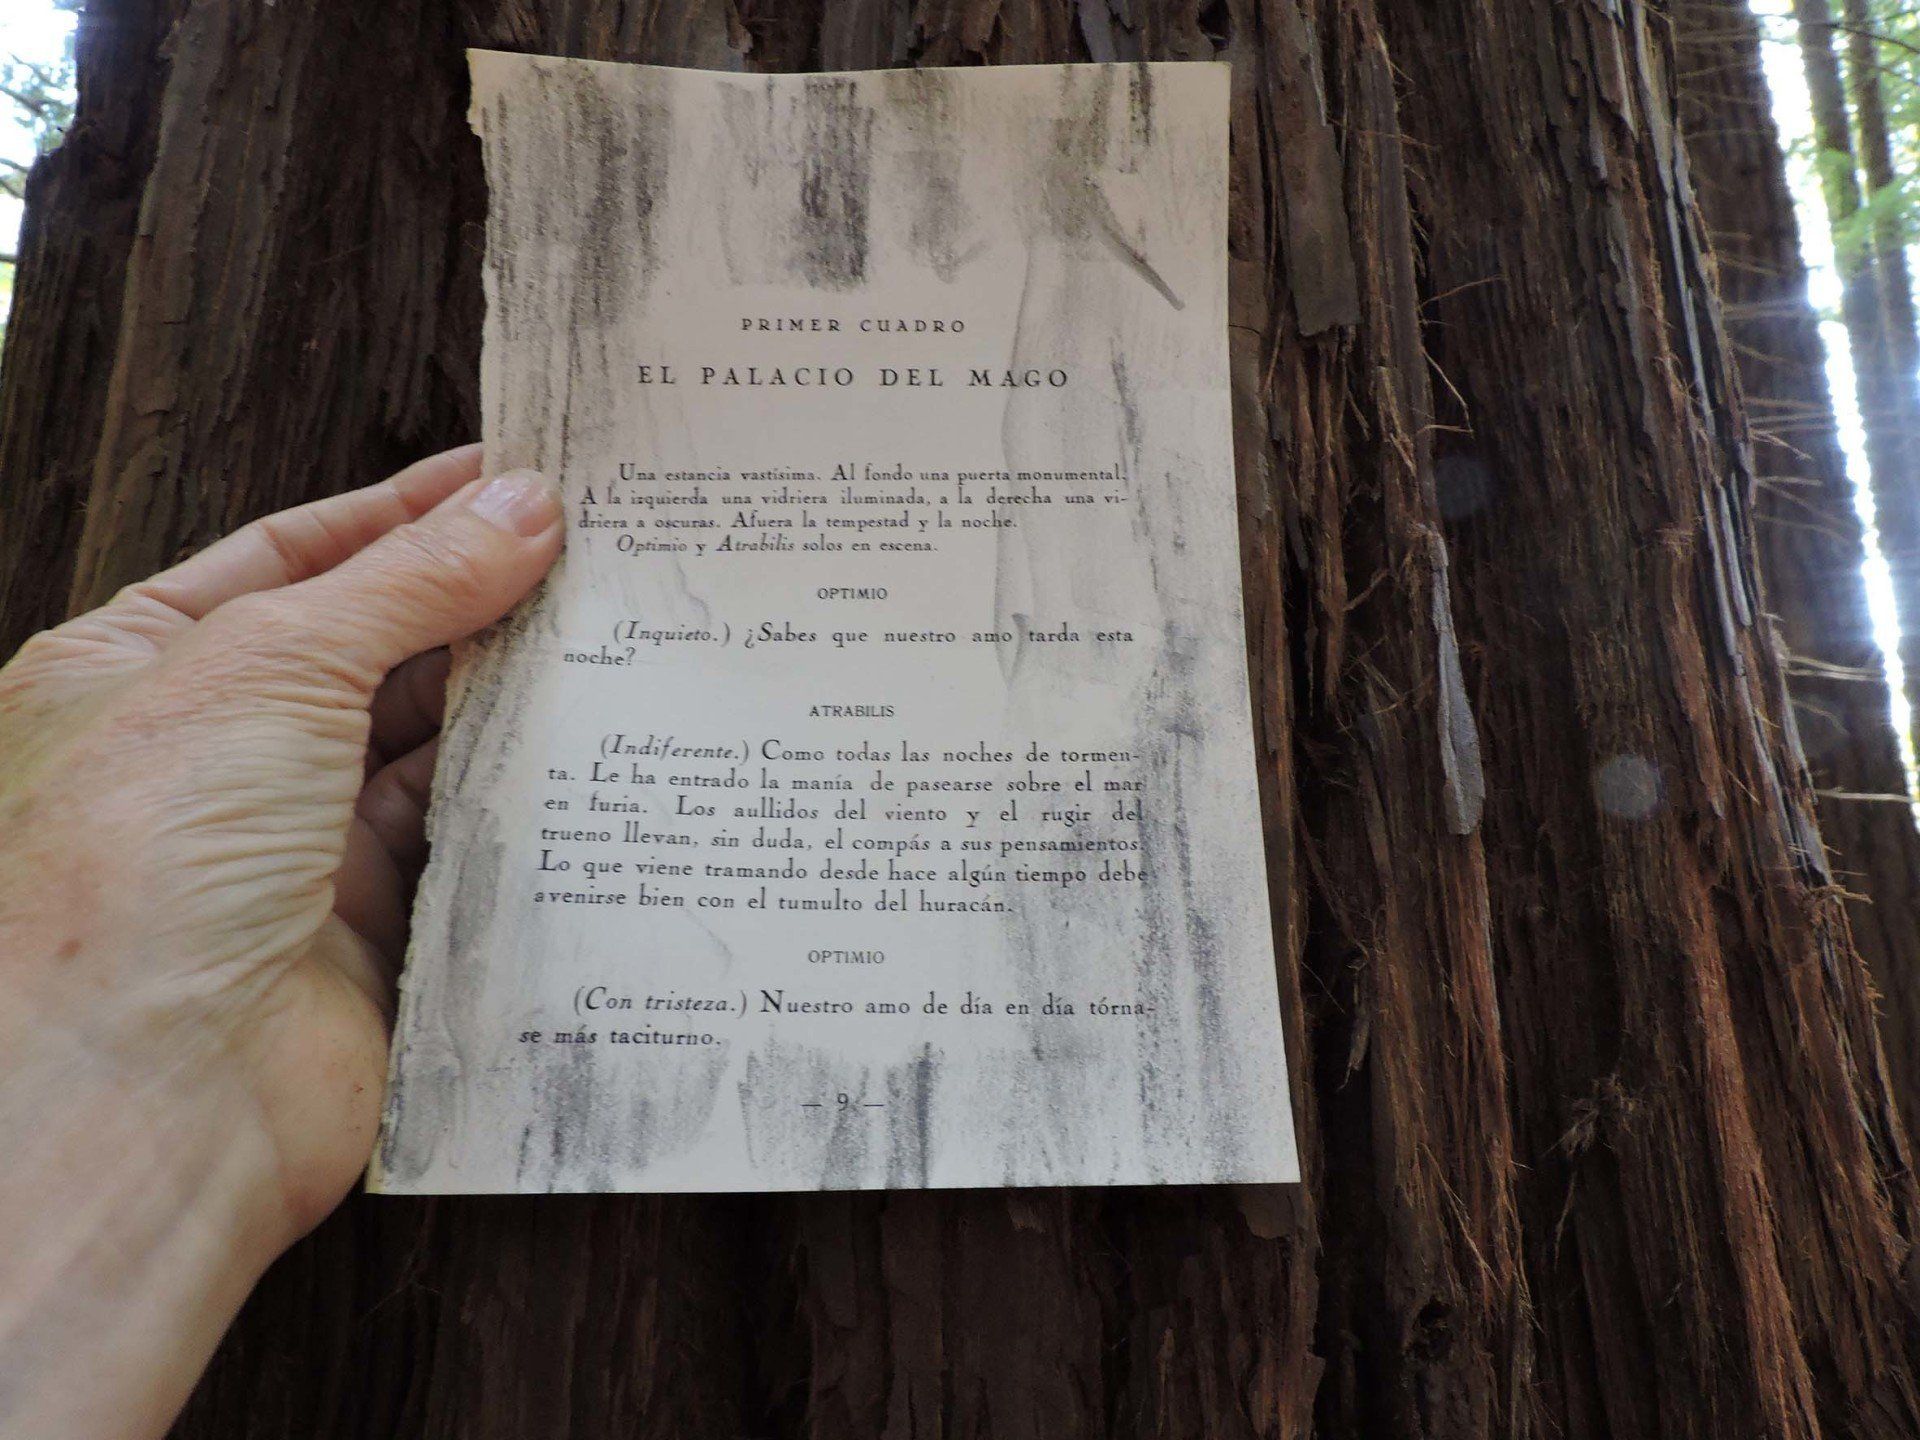 PRIMER CUADRO
EL PALACIO DEL MAGO
Una estancia vastísima. Al fondo una puerta monumental.
A la izquierda una vidriera iluminada, a la derecha una vi-
driera a oscuras. Afuera la tempestad y la noche.
Optimio y Atrabilis solos en escena.
OPTIMIO
(Inquieto.) ¿Sabes que nuestro amo tarda esta
noche?
ATRABILIS
(Indiferente.) Como todas las noches de tormen-
ta. Le ha entrado la manía de pasearse sobre el mar
en furia. Los aullidos del viento y el rugir del
trueno llevan, sin duda, el compás a sus pensamientos.
Lo que viene tramando desde hace algún tiempo debe
avenirse bien con el tumulto del huracán.
OPTIMIO
(Con tristeza.) Nuestro amo de día en día tórna-
se más taciturno.
— 9 —